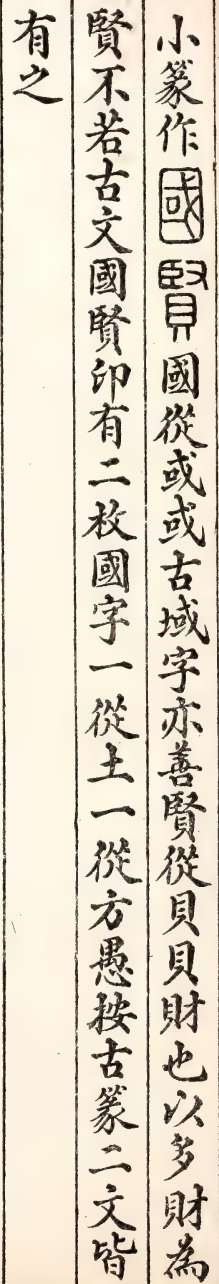 小篆作國賢國從或或古域字亦善賢從貝貝財也以多財為
賢不若古文國賢印有二枚國字一從土一從方愚按古篆二文皆
有之